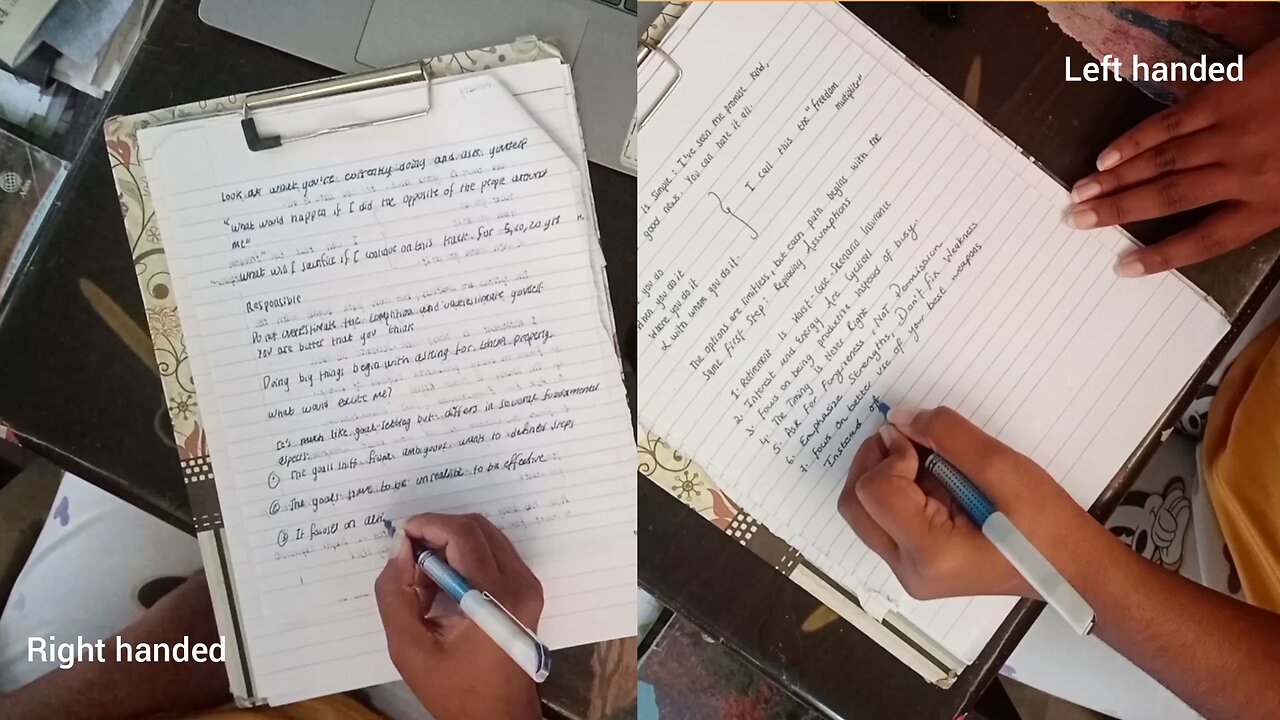 Right handed
Look at what you're currently doing and ask yourself
"What would happen if I did the opposite of the people around
me"
What will I sacrifice if I continue on this track for 5, 10, 20 yrs
Responsible
Do not overestimate the compition and underestimate yourself
You are better that you think
Doing big things begin with asking for them properly
What would excite me?
It's much like goal-setting but differs in several fundamental
aspects:
① The goals shift from ambiguous want to defined steps
② The goals have to be unrealistic to be effective
③ It focuses on
Left handed
is simple: I've seen the promise land,
good news. You can have it all.
you do
When you do it
Where you do it
& with whom you do it.
I call this the "freedom
multiplier"
The options are limitless, but each path begins with the
same first step: Replacing Assumptions
1. Retirement is Worst-Case-Scenario Insurance
2. Interest and Energy Are Cyclical
3. Focus on being productive instead of busy
4. The Timing is Never Right
5. Ask For Forgiveness, Not Permission
6. Emphasize Strengths, Don't Fix Weakness
7. Focus on better use of your best weapons
Instead of